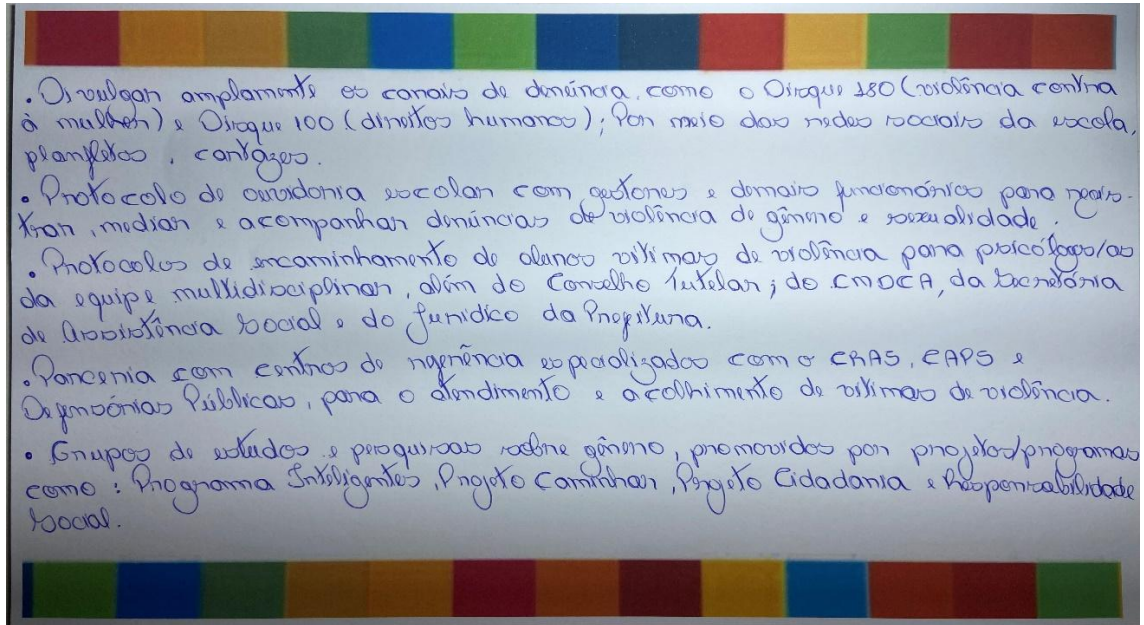 . Divulgar amplamente os canais de denúncia, como o Disque 180 (violência contra
à mulher) e Disque 100 (direitos humanos); Por meio das redes sociais da escola,
planfletos, cartázes.
. Protocolo de ouvidoria escolar com gestores e demais funcionários para regis-
trar, mediar e acompanhar denúncias de violência de gênero e sexualidade.
. Protocolos de encaminhamento de alunos vítimas de violência para psicólogo/as
da equipe multidisciplinar, além do Conselho Tutelar; do CMDCA, da Secretária
de Assistência Social e do Jurídico da Prefeitura.
. Parceria com centros de referência especializados como o CRAS, CAPS e
Defensórias Públicas, para o atendimento e acolhimento de vítimas de violência.
. Grupos de estudos e pesquisas sobre gênero, promovidos por projetos/programas
como: Programa Inteligentes, Projeto Caminhar, Projeto Cidadania e Responsabilidade
Social.